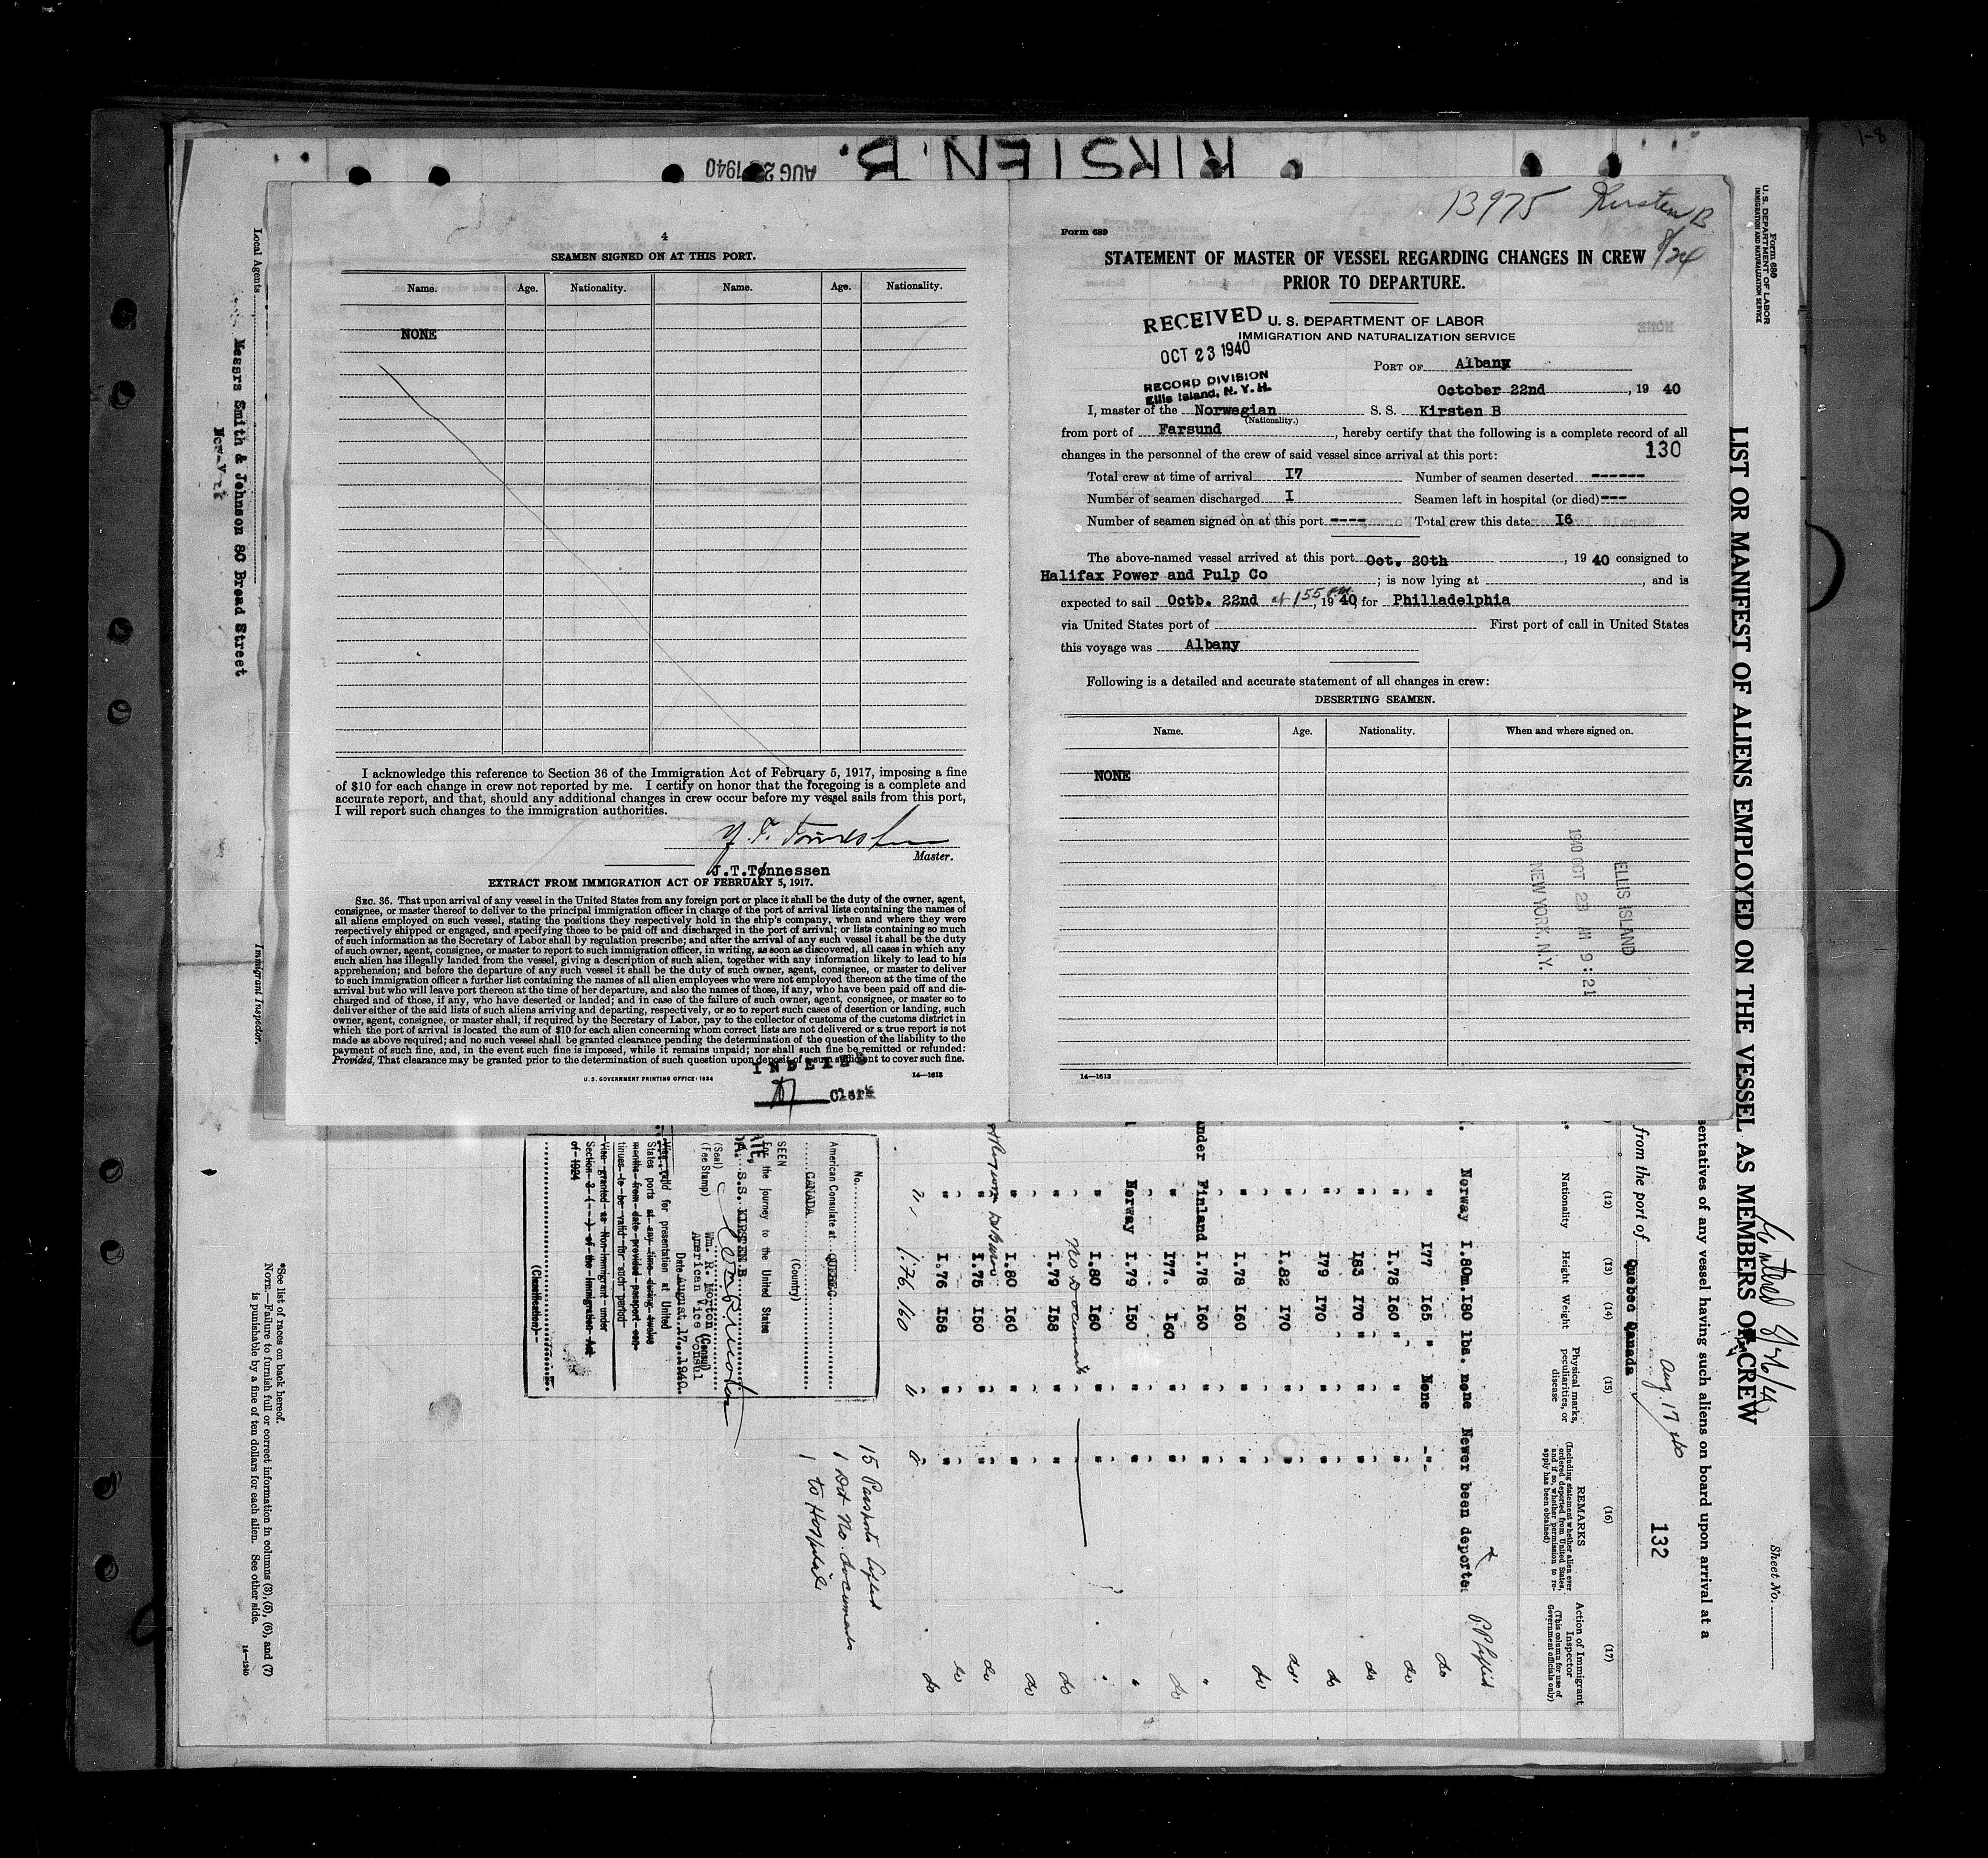 KIRSTEN B.
AUG 2 1940
1-8
4
SEAMEN SIGNED ON AT THIS PORT.
Name. Age. Nationality. Name. Age. Nationality.
NONE
I acknowledge this reference to Section 36 of the Immigration Act of February 5, 1917, imposing a fine
of $10 for each change in crew not reported by me. I certify on honor that the foregoing is a complete and
accurate report, and that, should any additional changes in crew occur before my vessel sails from this port,
I will report such changes to the immigration authorities.
Master.
J.T.Tønnessen
EXTRACT FROM IMMIGRATION ACT OF FEBRUARY 5, 1917.
SEC. 36. That upon arrival of any vessel in the United States from any foreign port or place it shall be the duty of the owner, agent,
consignee, or master thereof to deliver to the principal immigration officer in charge of the port of arrival lists containing the names of
all aliens employed on such vessel, stating the positions they respectively hold in the ship's company, when and where they were
respectively shipped or engaged, and specifying those to be paid off and discharged in the port of arrival; or lists containing so much
of such information as the Secretary of Labor shall by regulation prescribe; and after the arrival of any such vessel it shall be the duty
of such owner, agent, consignee, or master to report to such immigration officer, in writing, as soon as discovered, all cases in which any
such alien has illegally landed from the vessel, giving a description of such alien, together with any information likely to lead to his
apprehension; and before the departure of any such vessel it shall be the duty of such owner, agent, consignee, or master to deliver
to such immigration officer a further list containing the names of all alien employees who were not employed thereon at the time of the
arrival but who will leave port thereon at the time of her departure, and also the names of those, if any, who have been paid off and dis-
charged and of those, if any, who have deserted or landed; and in case of the failure of such owner, agent, consignee, or master so to
deliver either of the said lists of such aliens arriving and departing, respectively, or so to report such cases of desertion or landing, such
owner, agent, consignee, or master shall, if required by the Secretary of Labor, pay to the collector of customs of the customs district in
which the port of arrival is located the sum of $10 for each alien concerning whom correct lists are not delivered or a true report is not
made as above required; and no such vessel shall be granted clearance pending the determination of the question of the liability to the
payment of such fine, and, in the event such fine is imposed, while it remains unpaid; nor shall such fine be remitted or refunded:
Provided, That clearance may be granted prior to the determination of such question upon deposit of a sum sufficient to cover such fine.
U. S. GOVERNMENT PRINTING OFFICE: 1934
14—1613
INDEXED
Clerk
13975 Kirsten B
8/24
Form 689
STATEMENT OF MASTER OF VESSEL REGARDING CHANGES IN CREW
PRIOR TO DEPARTURE.
RECEIVED
OCT 23 1940
RECORD DIVISION
Ellis Island, N. Y. H.
U. S. DEPARTMENT OF LABOR
IMMIGRATION AND NATURALIZATION SERVICE
PORT OF Albany
October 22nd, 19 40
I, master of the Norwegian S. S. Kirsten B
(Nationality.)
from port of Farsund, hereby certify that the following is a complete record of all
changes in the personnel of the crew of said vessel since arrival at this port:
130
Total crew at time of arrival I7 Number of seamen deserted ------
Number of seamen discharged I Seamen left in hospital (or died) ---
Number of seamen signed on at this port ---- Total crew this date I6
The above-named vessel arrived at this port Oct. 20th, 19 40 consigned to
Halifax Power and Pulp Co; is now lying at, and is
expected to sail Octb. 22nd at 1 55 pm, 19 40, for Philladelphia
via United States port of First port of call in United States
this voyage was Albany
Following is a detailed and accurate statement of all changes in crew:
DESERTING SEAMEN.
Name. Age. Nationality. When and where signed on.
NONE
ELLIS ISLAND
1940 OCT 23 AM 9:21
NEW YORK, N.Y.
14—1613
Form 680
U. S. DEPARTMENT OF LABOR
IMMIGRATION AND NATURALIZATION SERVICE
Sheet No.
LIST OR MANIFEST OF ALIENS EMPLOYED ON THE VESSEL AS MEMBERS OF CREW
sentatives of any vessel having such aliens on board upon arrival at a
from the port of Quebec Canada
Aug. 17 40
132
(12) (13) (14) (15) (16) (17)
Nationality
Height
Weight
Physical marks, peculiarities, or disease
REMARKS
(Including statement whether alien ever ordered deported from United States, and if so, whether permission to re-apply has been obtained)
Action of Immigrant Inspector
(This column for use of Government officials only)
Norway I.80m. I80 lbs. none Newer been deported
" I77 I65 " None -"- do
" I.78 I60 " " " do
" I83 I70 " " " do
" I79 I70 " " do
" I.82 I70 " " do
" I.78 I60 " " do
Finland I.78 I60 " " "
" I77. I60 " " do
Norway I.79 I50 " " "
" I.80 I60 " "
No Documents
" I.79 I58 " " do
" I.80 I60 " " do
" I.75 I50 " " do
" I.76 I58 " " do
" 1.76. 160 " " do
15 Passports lifted
1 Det No. documents
1 to Hospital
No.
American Consulate at QUEBEC
CANADA
(Country)
SEEN
For the journey to the United States
S.S. KIRSTEN B.
(Seal)
(Fee Stamp)
Wm. R. Morton (Consul)
American Vice Consul
Date August 17, 1940.
Visa valid for presentation at United
States ports at any time during twelve
months from date provided passport con-
tinues to be valid for such period
Visa granted as Non-immigrant under
Section 3 (---) of the Immigration Act
of 1924
(Classification)
Local Agents
Messrs Smith & Johnson 80 Broad Street
New-York
Immigrant Inspector.
*See list of races on back hereof.
NOTE.—Failure to furnish full or correct information in columns (3), (5), (6), and (7)
is punishable by a fine of ten dollars for each alien. See other side.
14—1240